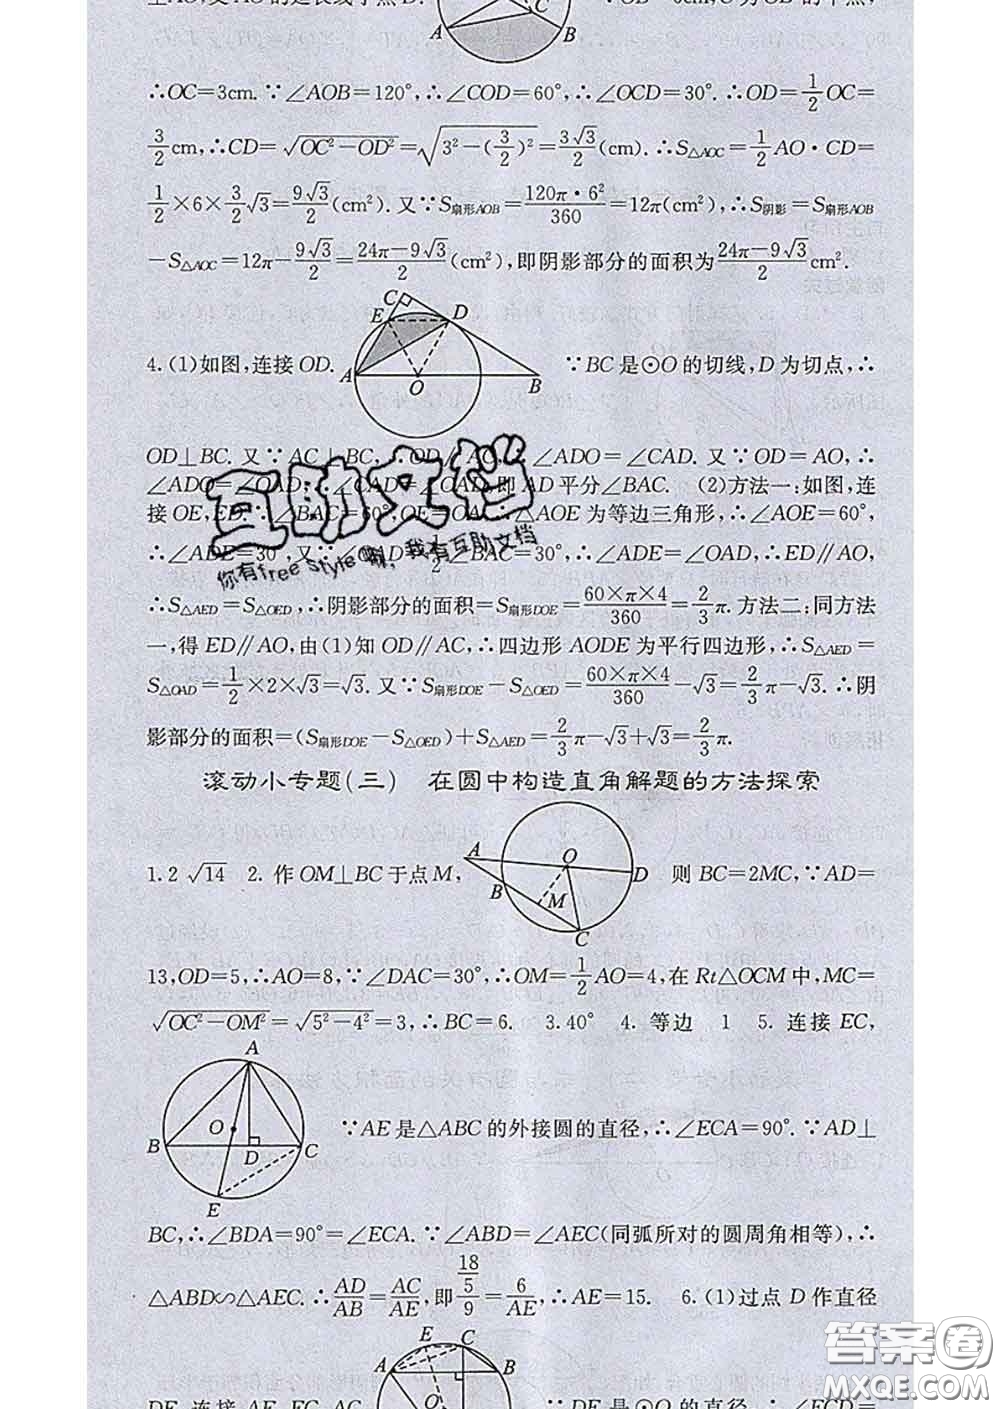 ∴OC=3cm. ∵∠AOB=120°,∴∠COD=60°,∴∠OCD=30°. ∴OD=1/2OC=
3/2cm,∴CD=√(OC²-OD²)=√(3²-(3/2)²)=3√3/2(cm). ∴S△AOC=1/2AO·CD=
1/2×6×3/2√3=9√3/2(cm²). 又∵S扇形AOB=120π·6²/360=12π(cm²),∴S阴影=S扇形AOB
-S△AOC=12π-9√3/2=(24π-9√3)/2(cm²),即阴影部分的面积为(24π-9√3)/2cm².
C
E D
4.(1)如图,连接OD. ∵BC是⊙O的切线,D为切点,∴
A O B
OD⊥BC. 又∵AC⊥BC,∴OD∥AC,∴∠ADO=∠CAD. 又∵OD=AO,∴
∠ADO=∠OAD,∴∠CAD=∠OAD,即AD平分∠BAC. (2)方法一:如图,连
接OE,ED. ∵∠BAC=60°,OE=OA,∴△AOE为等边三角形,∴∠AOE=60°,
∴∠ADE=30°,又∵∠OAD=1/2∠BAC=30°,∴∠ADE=∠OAD,∴ED∥AO,
∴S△AED=S△OED,∴阴影部分的面积=S扇形DOE=60×π×4/360=2/3π. 方法二:同方法
一,得ED∥AO,由(1)知OD∥AC,∴四边形AODE为平行四边形,∴S△AED=
S△OAD=1/2×2×√3=√3. 又∵S扇形DOE-S△OED=60×π×4/360-√3=2/3π-√3. ∴阴
影部分的面积=(S扇形DOE-S△OED)+S△AED=2/3π-√3+√3=2/3π.
互助文档
你有free style嘛,我有互助文档
滚动小专题(三) 在圆中构造直角解题的方法探索
1.2√14 2. 作OM⊥BC于点M, 则BC=2MC,∵AD=
A O D B M C
13,OD=5,∴AO=8,∵∠DAC=30°,∴OM=1/2AO=4,在Rt△OCM中,MC=
√(OC²-OM²)=√(5²-4²)=3,∴BC=6. 3.40° 4. 等边 1 5. 连接EC,
A O B D C E
∵AE是△ABC的外接圆的直径,∴∠ECA=90°. ∵AD⊥
BC,∴∠BDA=90°=∠ECA. ∵∠ABD=∠AEC(同弧所对的圆周角相等),∴
△ABD∽△AEC. ∴AD/AB=AC/AE,即(18/5)/9=6/AE,∴AE=15. 6.(1)过点D作直径
E C A B O
答案圈
MXQE.COM